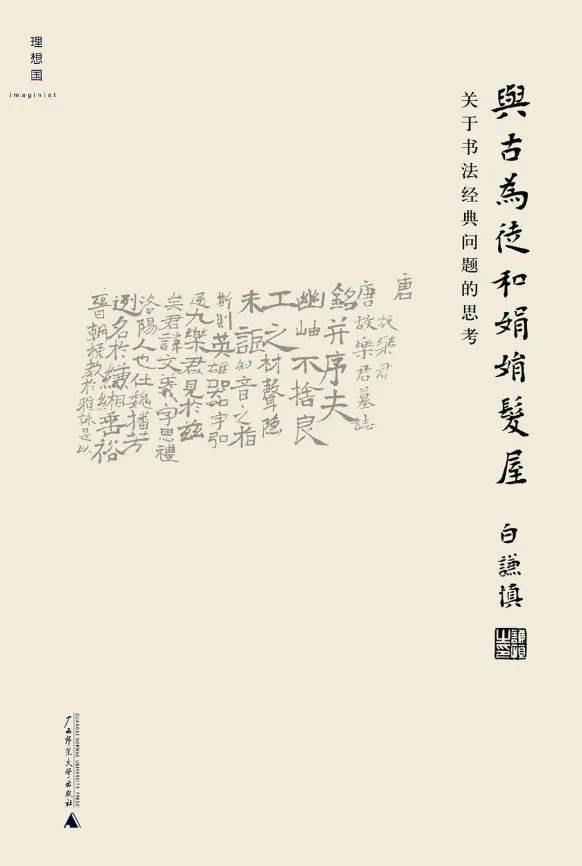 理想国
imaginist
與古為徒和娟娟髮屋
关于书法经典问题的思考
白謙慎
謙慎之印
唐
故樂君
唐故樂君墓誌
銘并序夫
幽岫不捨良
工之材聲隐
未謳知音之指
斯則英雄器宇弘
樂君見於茲
矣君諱文義字思禮
洛陽人也仕魏播芳
列名於縑緗垂裕
晉朝教於雅詠是以
广西师范大学出版社
GUANGXI NORMAL UNIVERSITY PRESS